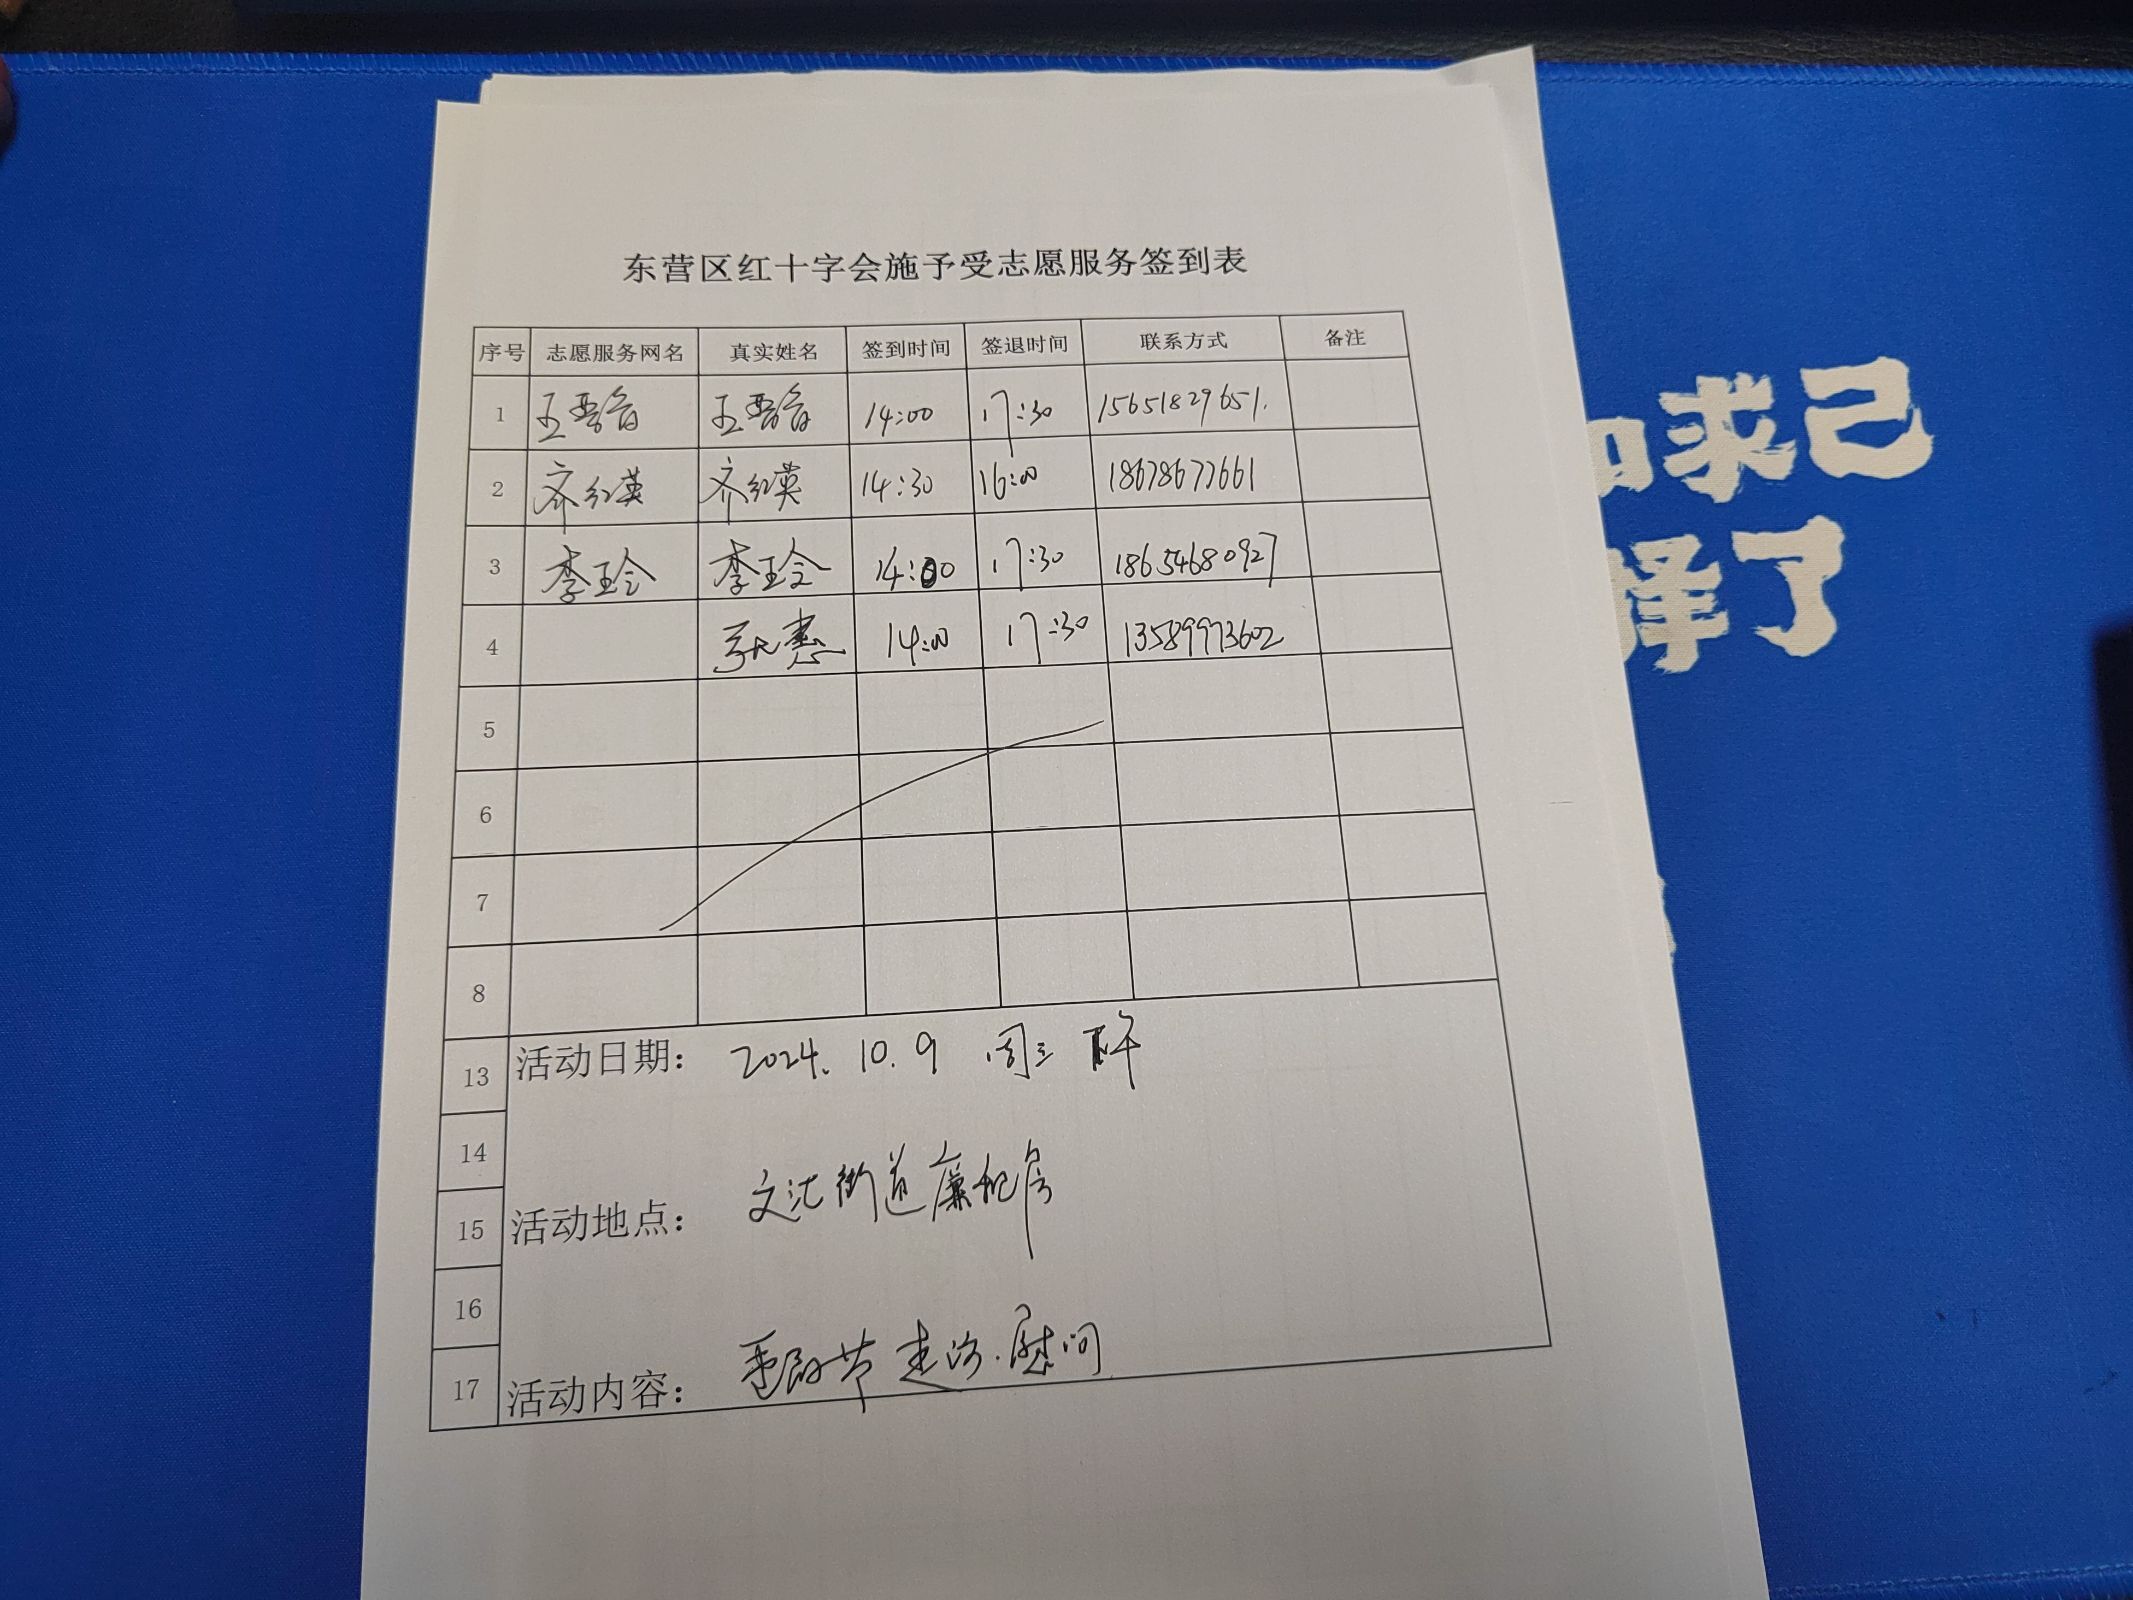 东营区红十字会施予受志愿服务签到表
序号 志愿服务网名 真实姓名 签到时间 签退时间 联系方式 备注
1 14:00 17:30 15651829651.
2 齐红英 齐红英 14:30 16:00 18678677661
3 李玲 李玲 14:00 17:30 18654680927
4 张惠 14:00 17:30 13589973602
5
6
7
8
13 活动日期: 2024. 10. 9 周三 下午
14
15 活动地点: 文汇街道廉租房
16
17 活动内容: 重阳节走访.慰问
求己
择了